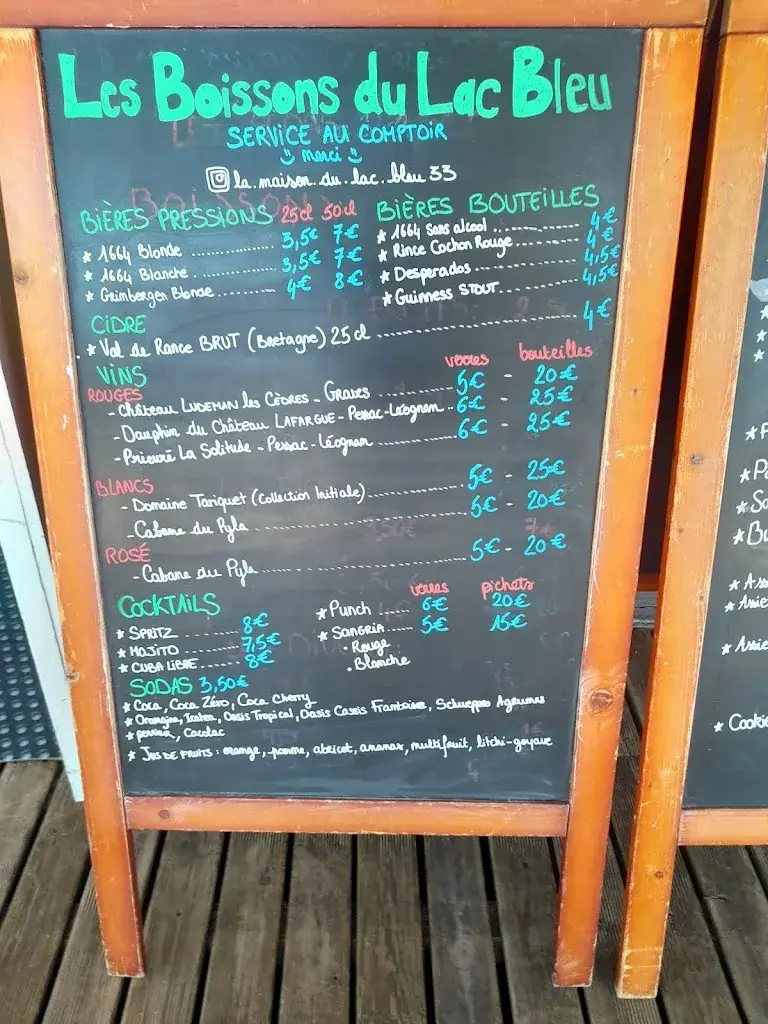 Les Boissons du Lac Bleu
SERVICE AU COMPTOIR
merci
la.maison.du.lac.bleu 33
BIÈRES PRESSIONS 25cl 50cl
* 1664 Blonde .............. 3,5€ 7€
* 1664 Blanche ............ 3,5€ 7€
* Grimbergen Blonde ......... 4€ 8€
BIÈRES BOUTEILLES
* 1664 sans alcool .............. 4€
* Rince Cochon Rouge ......... 4€
* Desperados ................ 4,5€
* Guinness STOUT ............ 4,5€
CIDRE
* Val de Rance BRUT (Bretagne) 25 cl ................ 4€
VINS verres bouteilles
ROUGES
- Château LUDEMAN les CÈDRES - Graves ........ 5€ - 20€
- Dauphin du Château LAFARGUE - Pessac-Léognan .. 6€ - 25€
- Prieuré La Solitude - Pessac-Léognan ............ 6€ - 25€
BLANCS
- Domaine Tariquet (Collection Initiale) ............ 5€ - 25€
- Cabane du Pyla ................ 5€ - 20€
ROSÉ
- Cabane du Pyla ................ 5€ - 20€
COCKTAILS
* SPRITZ ........... 8€
* MOJITO .......... 7,5€
* CUBA LIBRE ...... 8€
verres pichets
* Punch ....... 6€ 20€
* SANGRIA ..... 5€ 15€
. Rouge
. Blanche
SODAS 3,50€
* Coca, Coca Zéro, Coca Cherry
* Orangina, Icetea, Oasis Tropical, Oasis Cassis Framboise, Schweppes Agrumes
* perrier, Cacolac
* JUS DE FRUITS : orange, pomme, abricot, ananas, multifruit, litchi-goyave
* Cookie